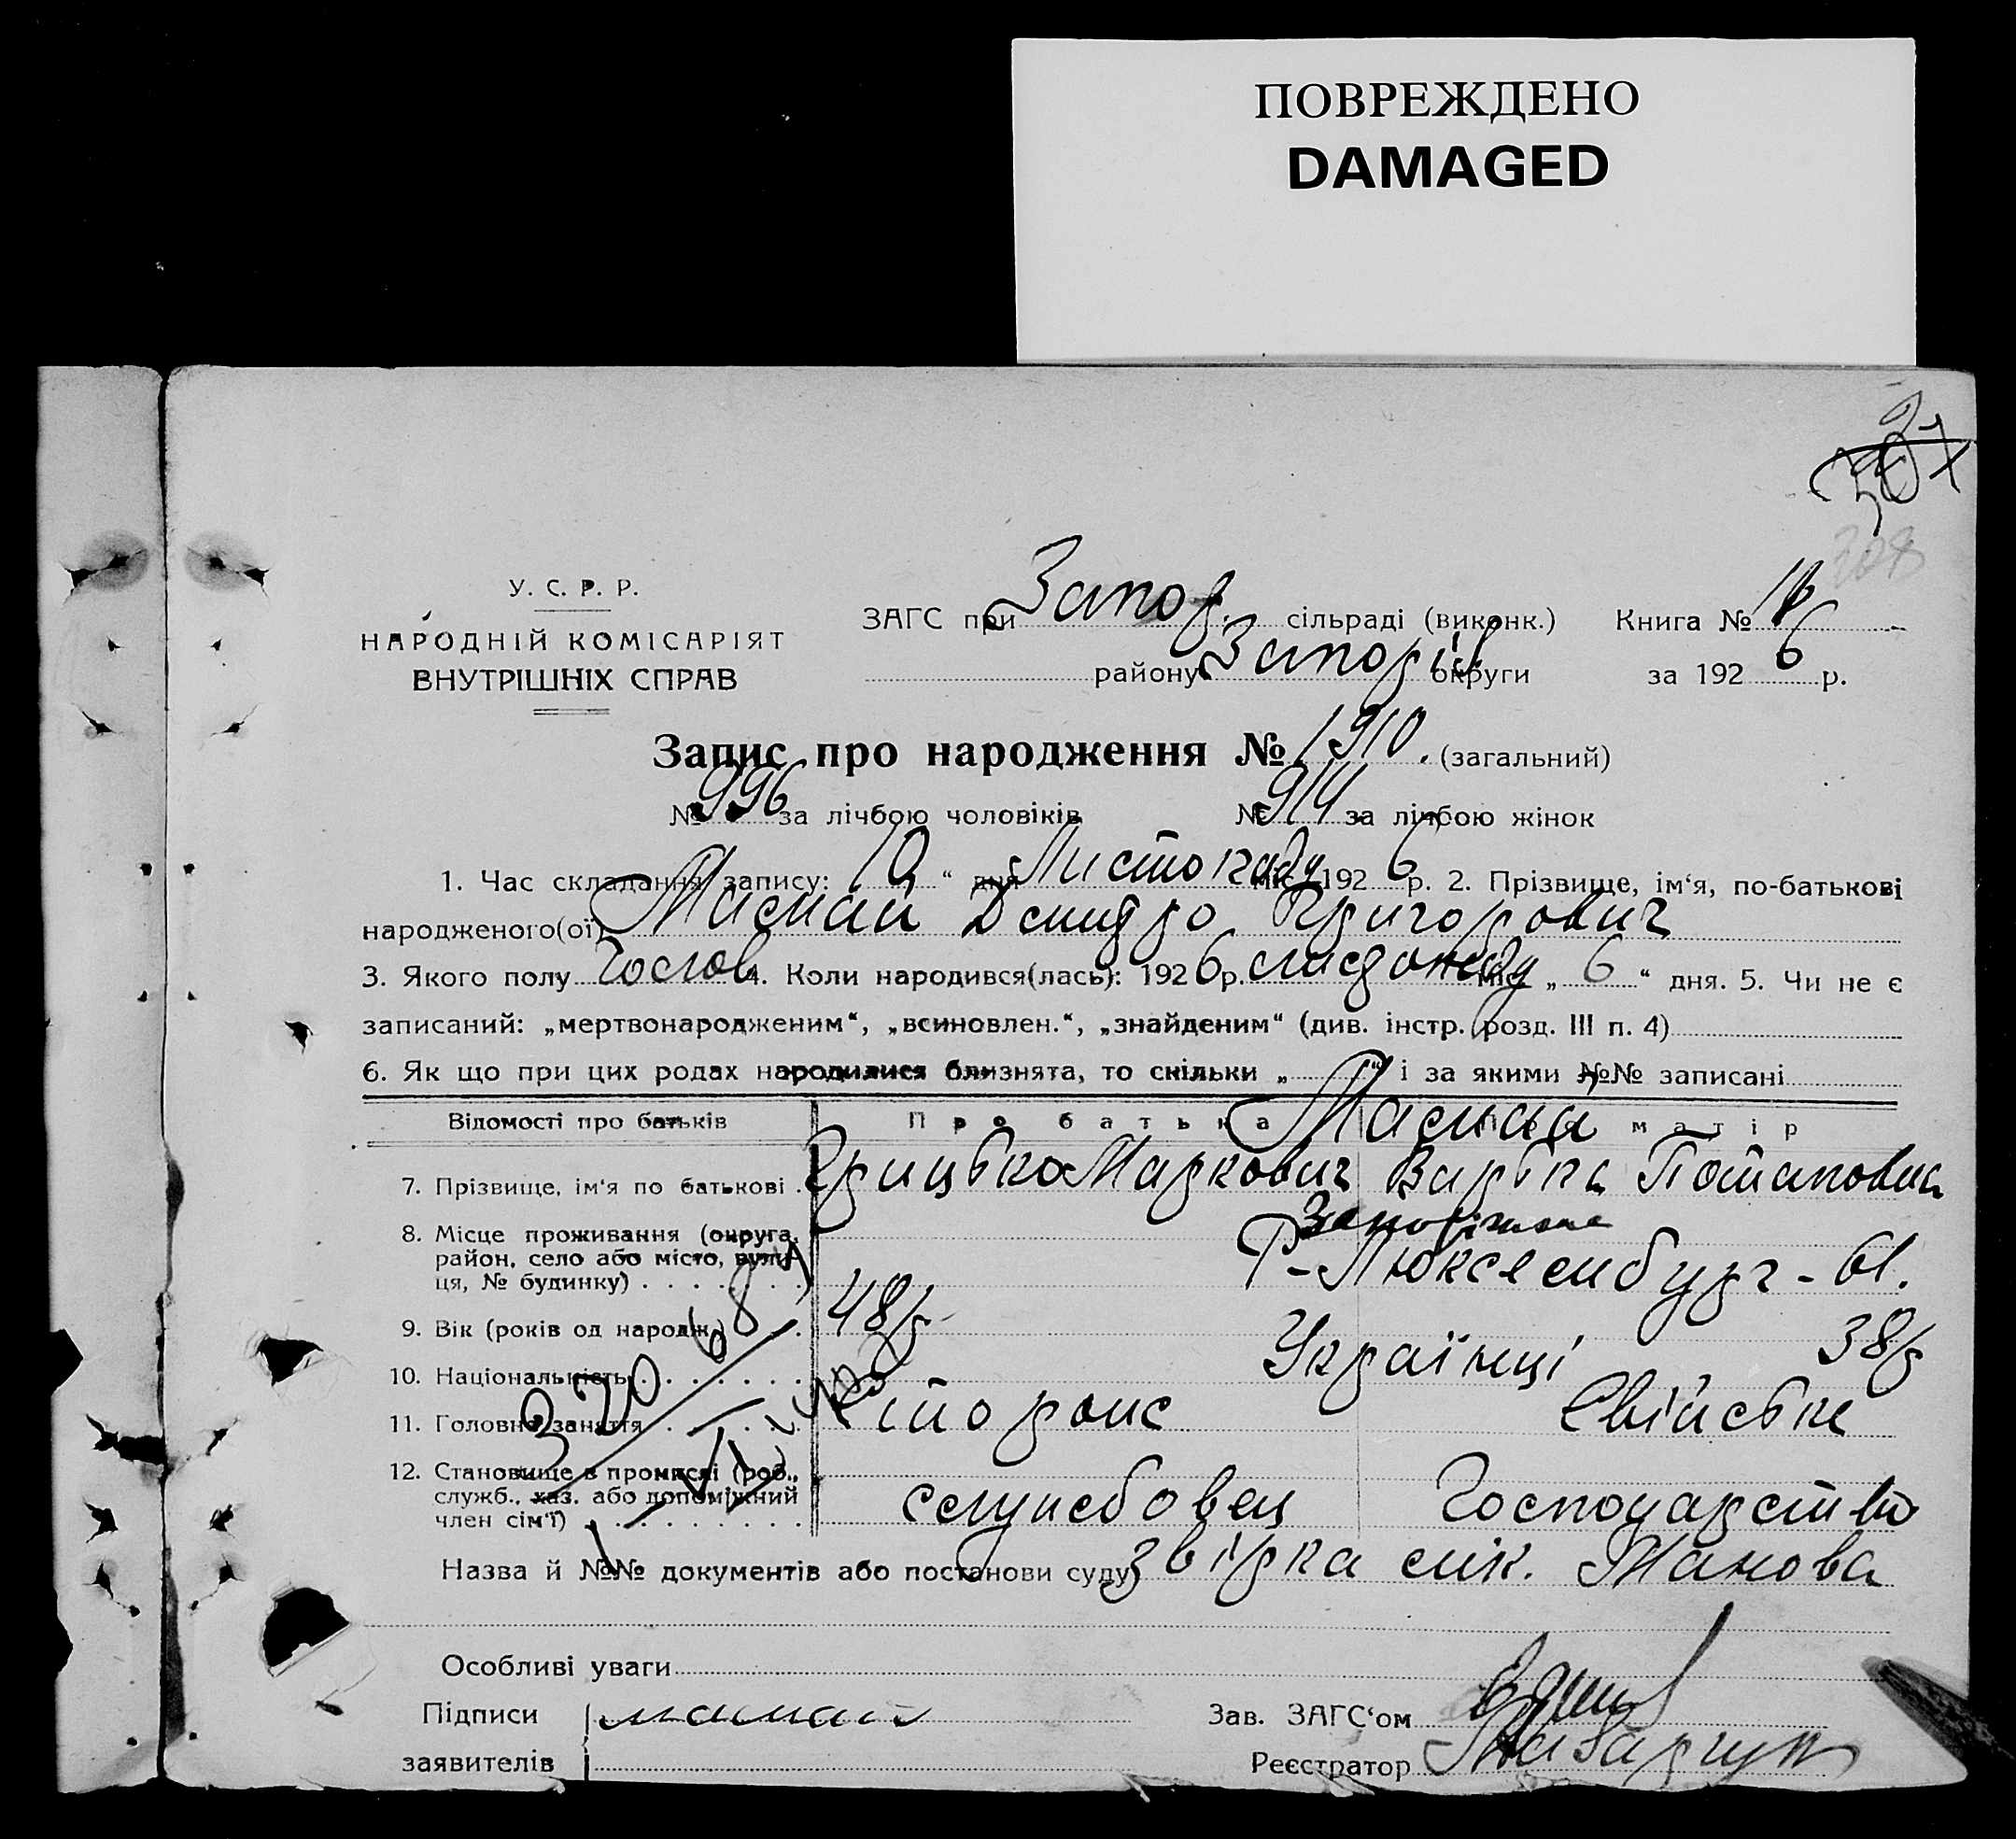 ПОВРЕЖДЕНО
DAMAGED
307
308
У. С. Р. Р.
НАРОДНІЙ КОМІСАРІЯТ
ВНУТРІШНІХ СПРАВ
ЗАГС при Запор. сільраді (виконк.) Книга №
району Запоріж округи за 1926 р.
Запис про народження № 1910. (загальний)
№ 996 за лічбою чоловіків № 914 за лічбою жінок
1. Час складання запису: 10 “ дня Листопаду міс. 1926 р. 2. Прізвище, ім‘я, по-батькові
народженого(ої) Мамай Дмидро Григорович
3. Якого полу Чолов 4. Коли народився(лась): 1926 р. листопаду міс. „ 6 “ дня. 5. Чи не є
записаний: „мертвонародженим“, „всиновлен.“, „знайденим“ (див. інстр. розд. III п. 4)
6. Як що при цих родах народилися близнята, то скільки „ “ і за якими №№ записані
Відомості про батьків Про батька Мамай матір
7. Прізвище, ім‘я по батькові Грицько Маркович Варька Потаповна
8. Місце проживання (округа, район, село або місто, вулиця, № будинку) Запоріжжя
Р-Люксембург-61.
9. Вік (років од народж.) 48 р 38 р
10. Національність Українці
11. Головне заняття Сторож Свійське
12. Становище в промислі (роб., служб., хаз. або допоміжний член сім‘ї) службовец Господарство
Назва й №№ документів або постанови суду Звірка Манова
Особливі уваги
Підписи мамай Зав. ЗАГС‘ом
заявителів Реєстратор